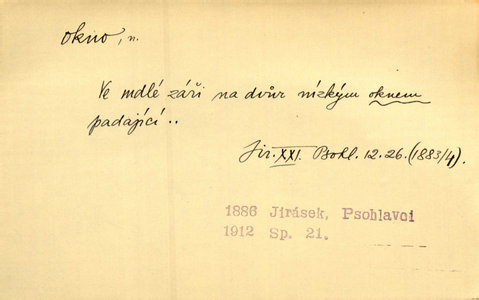 okno, n.
Ve mdlé záři na dvůr nízkým oknem
padající..
Jir. XXI. Psohl. 12.26. (1883/4).
1886 Jirásek, Psohlavci
1912 Sp. 21.